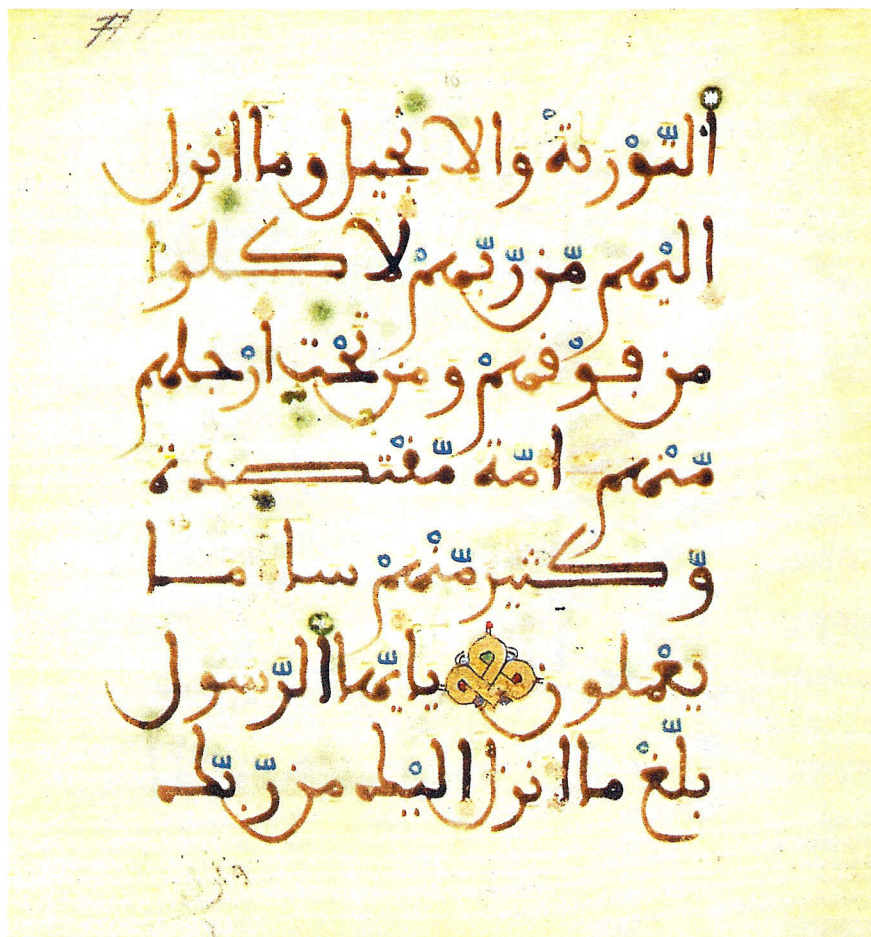 التَّوْرىة والانجيل وما انزل
اليْهم مّن رّبّهمْ لاكلوا
من فوْقهمْ ومن تحْت ارْجلهم
مّنْهم امّة مّقْتصدة
وّكثير مّنْهمْ سا ما
يعْملون يايّها الرّسول
بلّغْ ما انزل اليْك من رّبّك